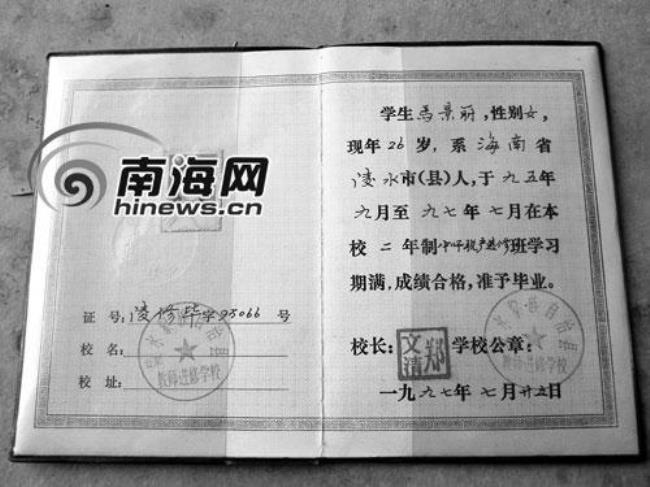 南海网
hinews.cn
证号:凌修毕字95066号
校名:
校址:
教师进修学校
学生马景丽,性别女,
现年26岁,系海南省
凌水市(县)人,于九五年
九月至九七年七月在本
校二年制班学习
期满,成绩合格,准予毕业。
校长:
文清
郑
学校公章:
自治县
教师进修学校
一九九七年七月廿五日